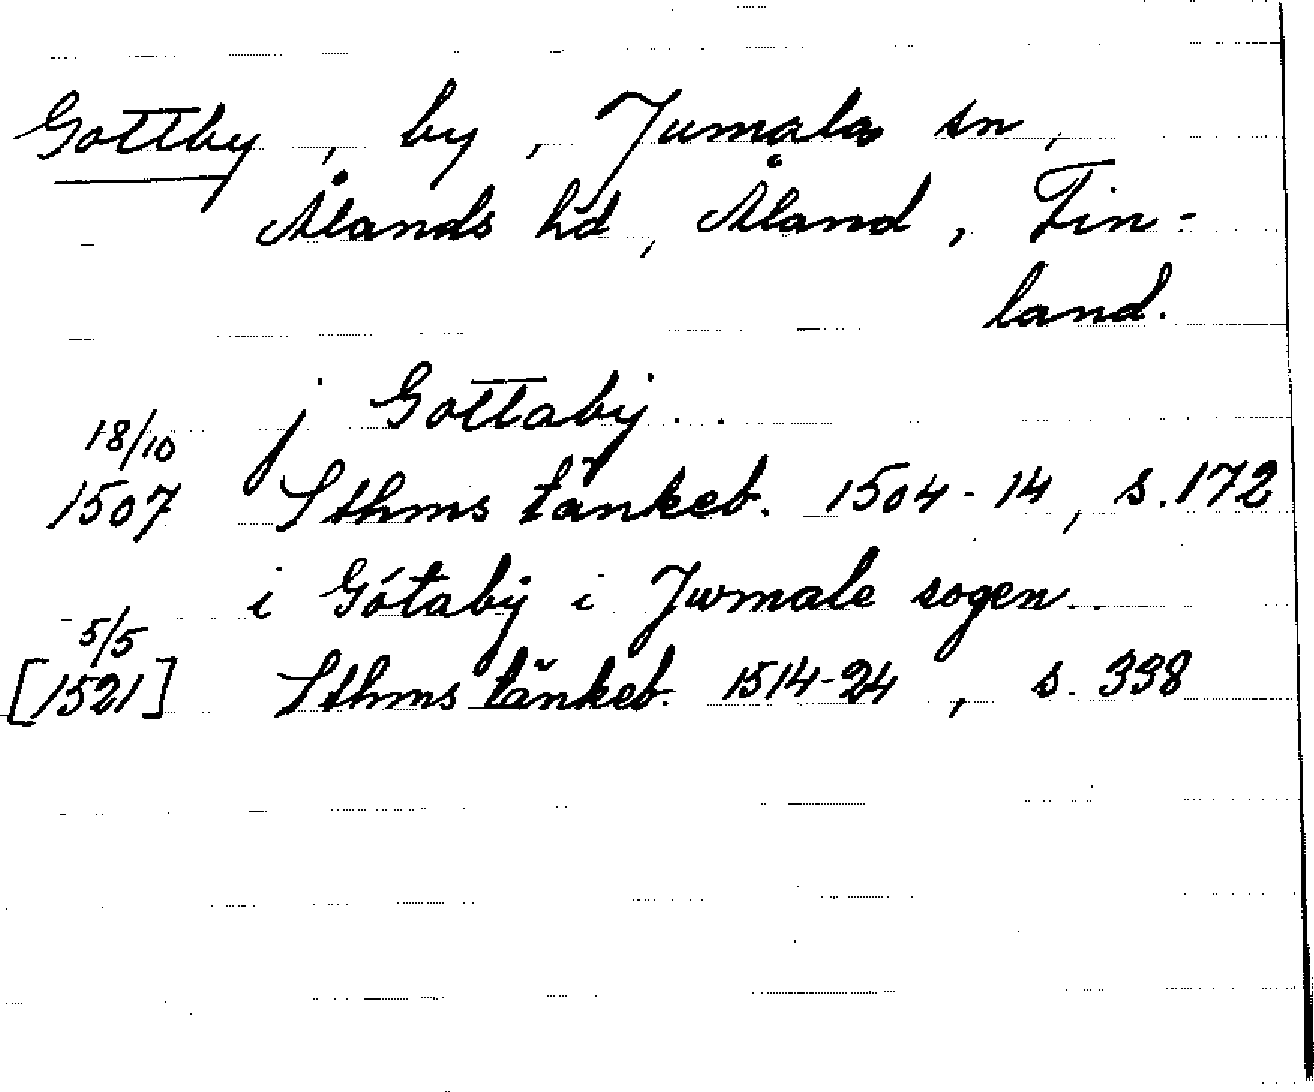 Gottby, by, Jumala sn,
Ålands hd, Åland, Fin-
land.
j Gottaby
18/10
1507 Sthms tänkeb. 1504-14, s. 172
i Gótabÿ i Jwmale sogen
5/5
[1521] Sthms tänkeb. 1514-24, s. 338